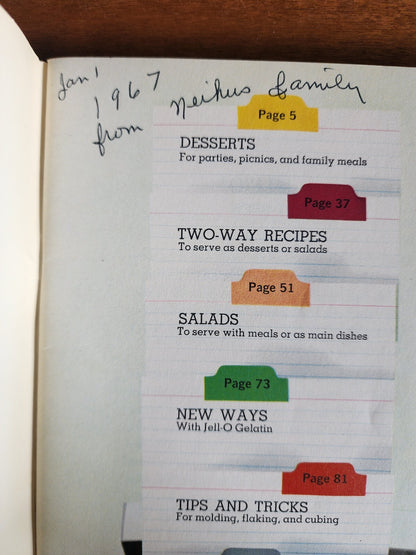 Jan 1
1967
from Neihus family
Page 5
DESSERTS
For parties, picnics, and family meals
Page 37
TWO-WAY RECIPES
To serve as desserts or salads
Page 51
SALADS
To serve with meals or as main dishes
Page 73
NEW WAYS
With Jell-O Gelatin
Page 81
TIPS AND TRICKS
For molding, flaking, and cubing